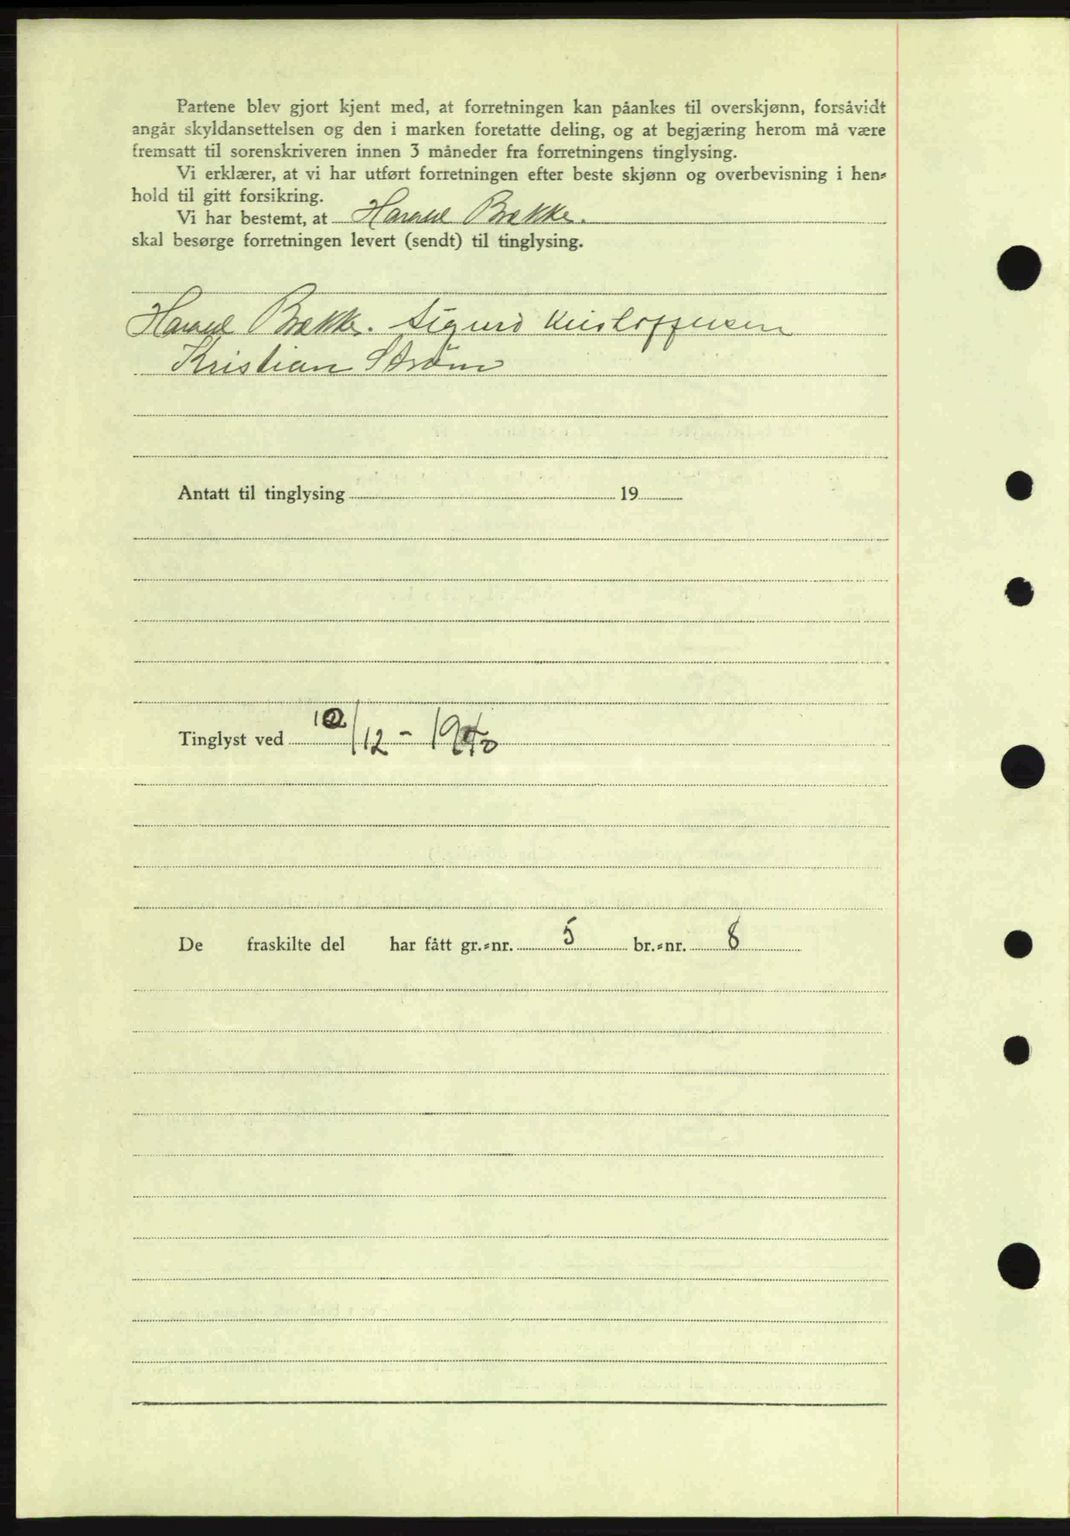 Partene blev gjort kjent med, at forretningen kan påankes til overskjønn, forsåvidt
angår skyldansettelsen og den i marken foretatte deling, og at begjæring herom må være
fremsatt til sorenskriveren innen 3 måneder fra forretningens tinglysing.
Vi erklærer, at vi har utført forretningen efter beste skjønn og overbevisning i hen-
hold til gitt forsikring.
Vi har bestemt, at Harald Bække.
skal besørge forretningen levert (sendt) til tinglysing.
Harald Bække. Sigurd Kristoffersen
Kristian Strøm
Antatt til tinglysing 19
Tinglyst ved /12 - 1940
De fraskilte del har fått gr.-nr. 5 br.-nr. 8